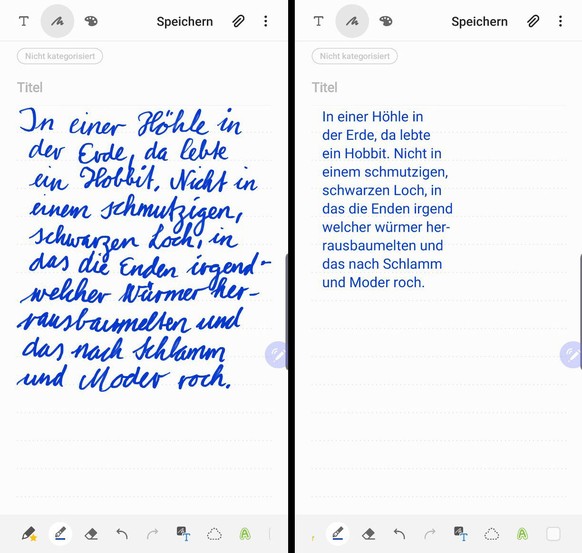 T Speichern
Nicht kategorisiert
Titel
In einer Höhle in
der Erde, da lebte
ein Hobbit. Nicht in
einem schmutzigen,
schwarzen Loch, in
das die Enden irgend-
welcher Würmer her-
rausbaumelten und
das nach Schlamm
und Moder roch.
T
A
T Speichern
Nicht kategorisiert
Titel
In einer Höhle in
der Erde, da lebte
ein Hobbit. Nicht in
einem schmutzigen,
schwarzen Loch, in
das die Enden irgend
welcher würmer her-
rausbaumelten und
das nach Schlamm
und Moder roch.
T
A